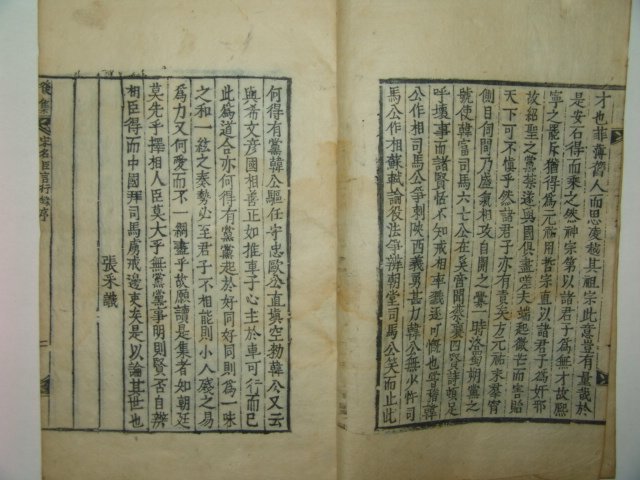 才也菲薄前人而思凌越其祖宗此意豈有量哉於
是安石得而乘之然神宗第以諸君子爲無才故熙
寧之罷斥猶得爲元祐用哲宗直以諸君子爲奸邪
故紹聖之黨禁遂與國俱盡嗟夫端起微芒而害貽
天下可不慎乎然諸君子亦有責矣方元祐來羣賢
側目伺乃盛氣相攻自開之釁一時洛蜀朔黨之
號使韓富司馬六七公在奚啻聞蔡襄四賢詩頓足
呼壞事而諸賢恬不知戒相率譏逐可慨也 韓
公作相司馬公爭刺陝西義勇甚力韓公無少忤司
馬公作相蘇軾論役法爭辨朝堂司馬公笑而止此
何得有黨韓公驅任守忠歐公直填空勑韓公又云
與希文彥國相善正如推車子心主於車可行而已
此爲道合亦何得有黨黨起於好同好同則爲一味
之和一絃之奏勢必至君子不相能則小人廢之易
爲力又何愛而不一網盡乎故願讀是集者知朝廷
莫先乎擇相人臣莫大乎無黨黨事明則賢否自辨
相臣得而中國拜司馬虜戒邊吏矣是以論其世也
張采識
後集 宋名臣言行錄序 二